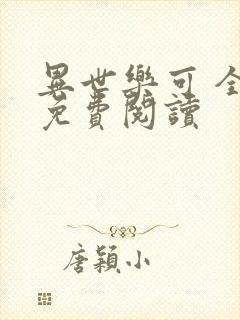 異世樂可 全
免費閱讀
唐穎小